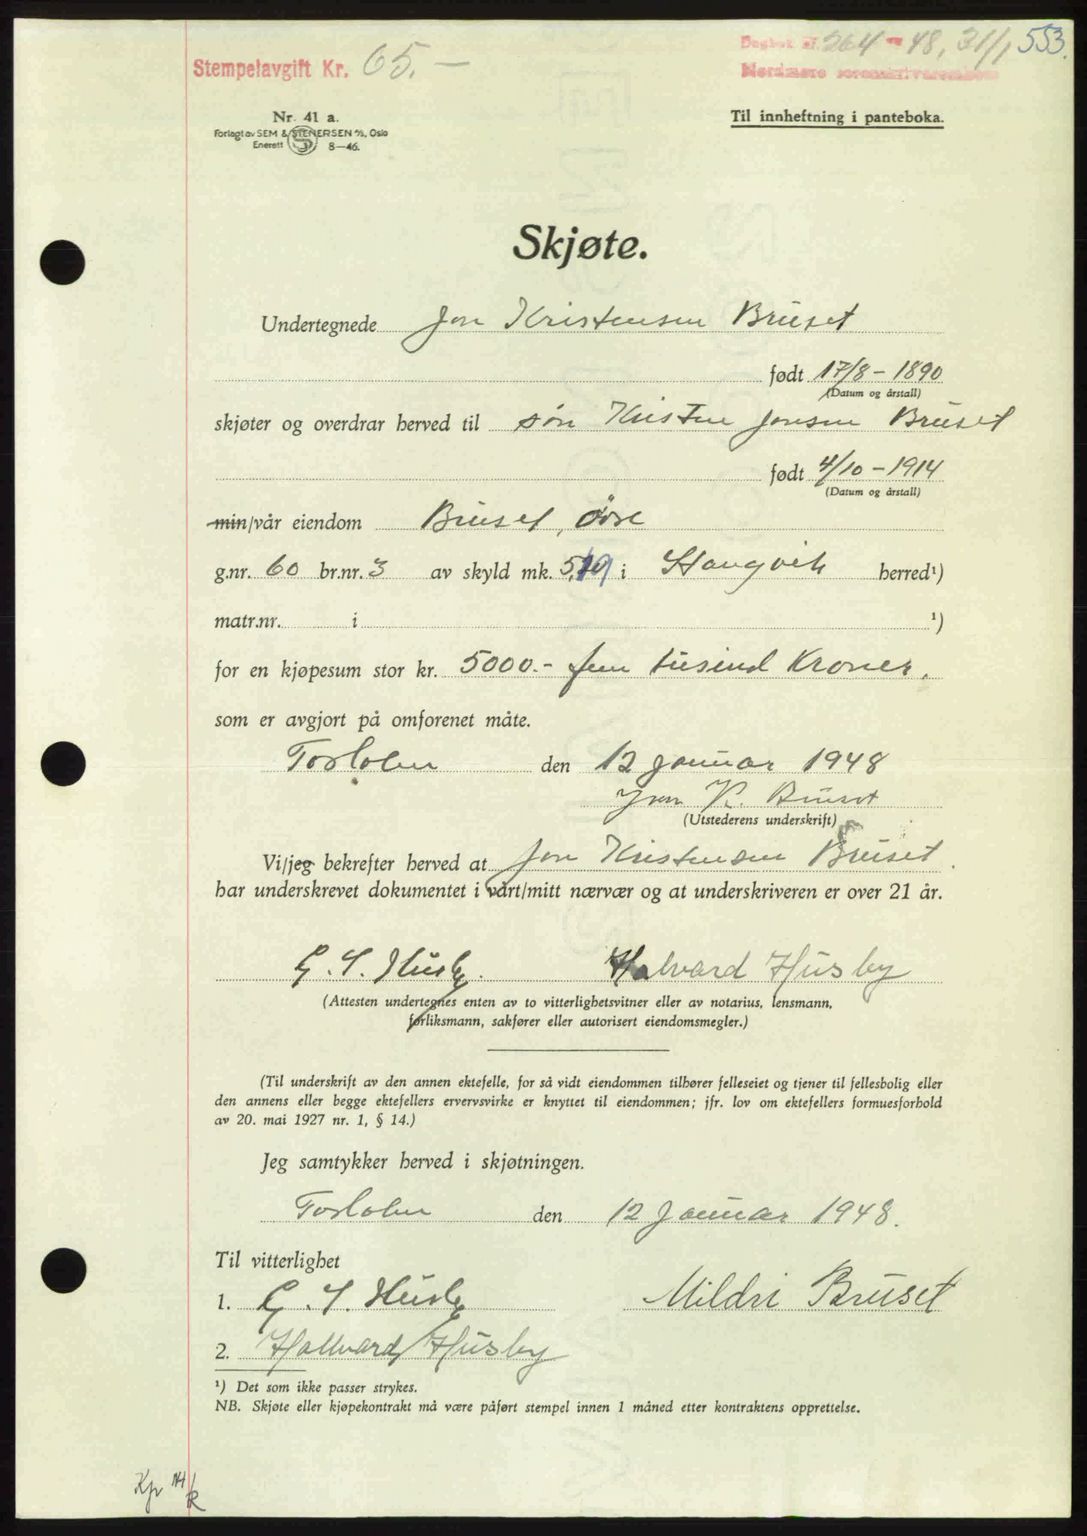 Stempelavgift Kr. 65.—
Dagbok nr. 264 - 48, 31/1 553.
Nordmøre sorenskriverembete
Nr. 41 a.
Forlagt av SEM & STENERSEN A/S, Oslo
Enerett S 8—46.
Til innheftning i panteboka.
Skjøte.
Undertegnede Jon Kristensen Bruset
født 17/8 - 1890
(Datum og årstall)
skjøter og overdrar herved til søn Kristen Jonsen Bruset
født 4/10 - 1914
(Datum og årstall)
min/vår eiendom Bruset, øvre
g.nr. 60 br.nr. 3 av skyld mk. 5,19 i Stangvik herred¹)
matr.nr. i ¹)
for en kjøpesum stor kr. 5000.- fem tusind Kroner.
som er avgjort på omforenet måte.
den 12 januar 1948
Jon K. Bruset
(Utstederens underskrift)
Vi/jeg bekrefter herved at Jon Kristensen Bruset.
har underskrevet dokumentet i vårt/mitt nærvær og at underskriveren er over 21 år.
G. S. Husby. Halvard Husby
(Attesten undertegnes enten av to vitterlighetsvitner eller av notarius, lensmann,
forliksmann, sakfører eller autorisert eiendomsmegler.)
(Til underskrift av den annen ektefelle, for så vidt eiendommen tilhører felleseiet og tjener til fellesbolig eller
den annens eller begge ektefellers ervervsvirke er knyttet til eiendommen; jfr. lov om ektefellers formuesforhold
av 20. mai 1927 nr. 1, § 14.)
Jeg samtykker herved i skjøtningen.
den 12 Januar 1948.
Til vitterlighet
1. G. S. Husby Mildri Bruset
2. Hallvard Husby
¹) Det som ikke passer strykes.
NB. Skjøte eller kjøpekontrakt må være påført stempel innen 1 måned etter kontraktens opprettelse.